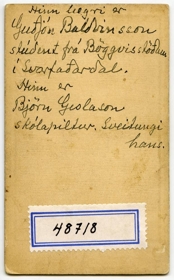 Hinn hægri er
Guðjón Baldvinsson
student frá Böggvisstöðum
í Svarfaðardal.
Hinn er
Björn Gíslason
skólapiltur. Sveitungi
hans.
48718